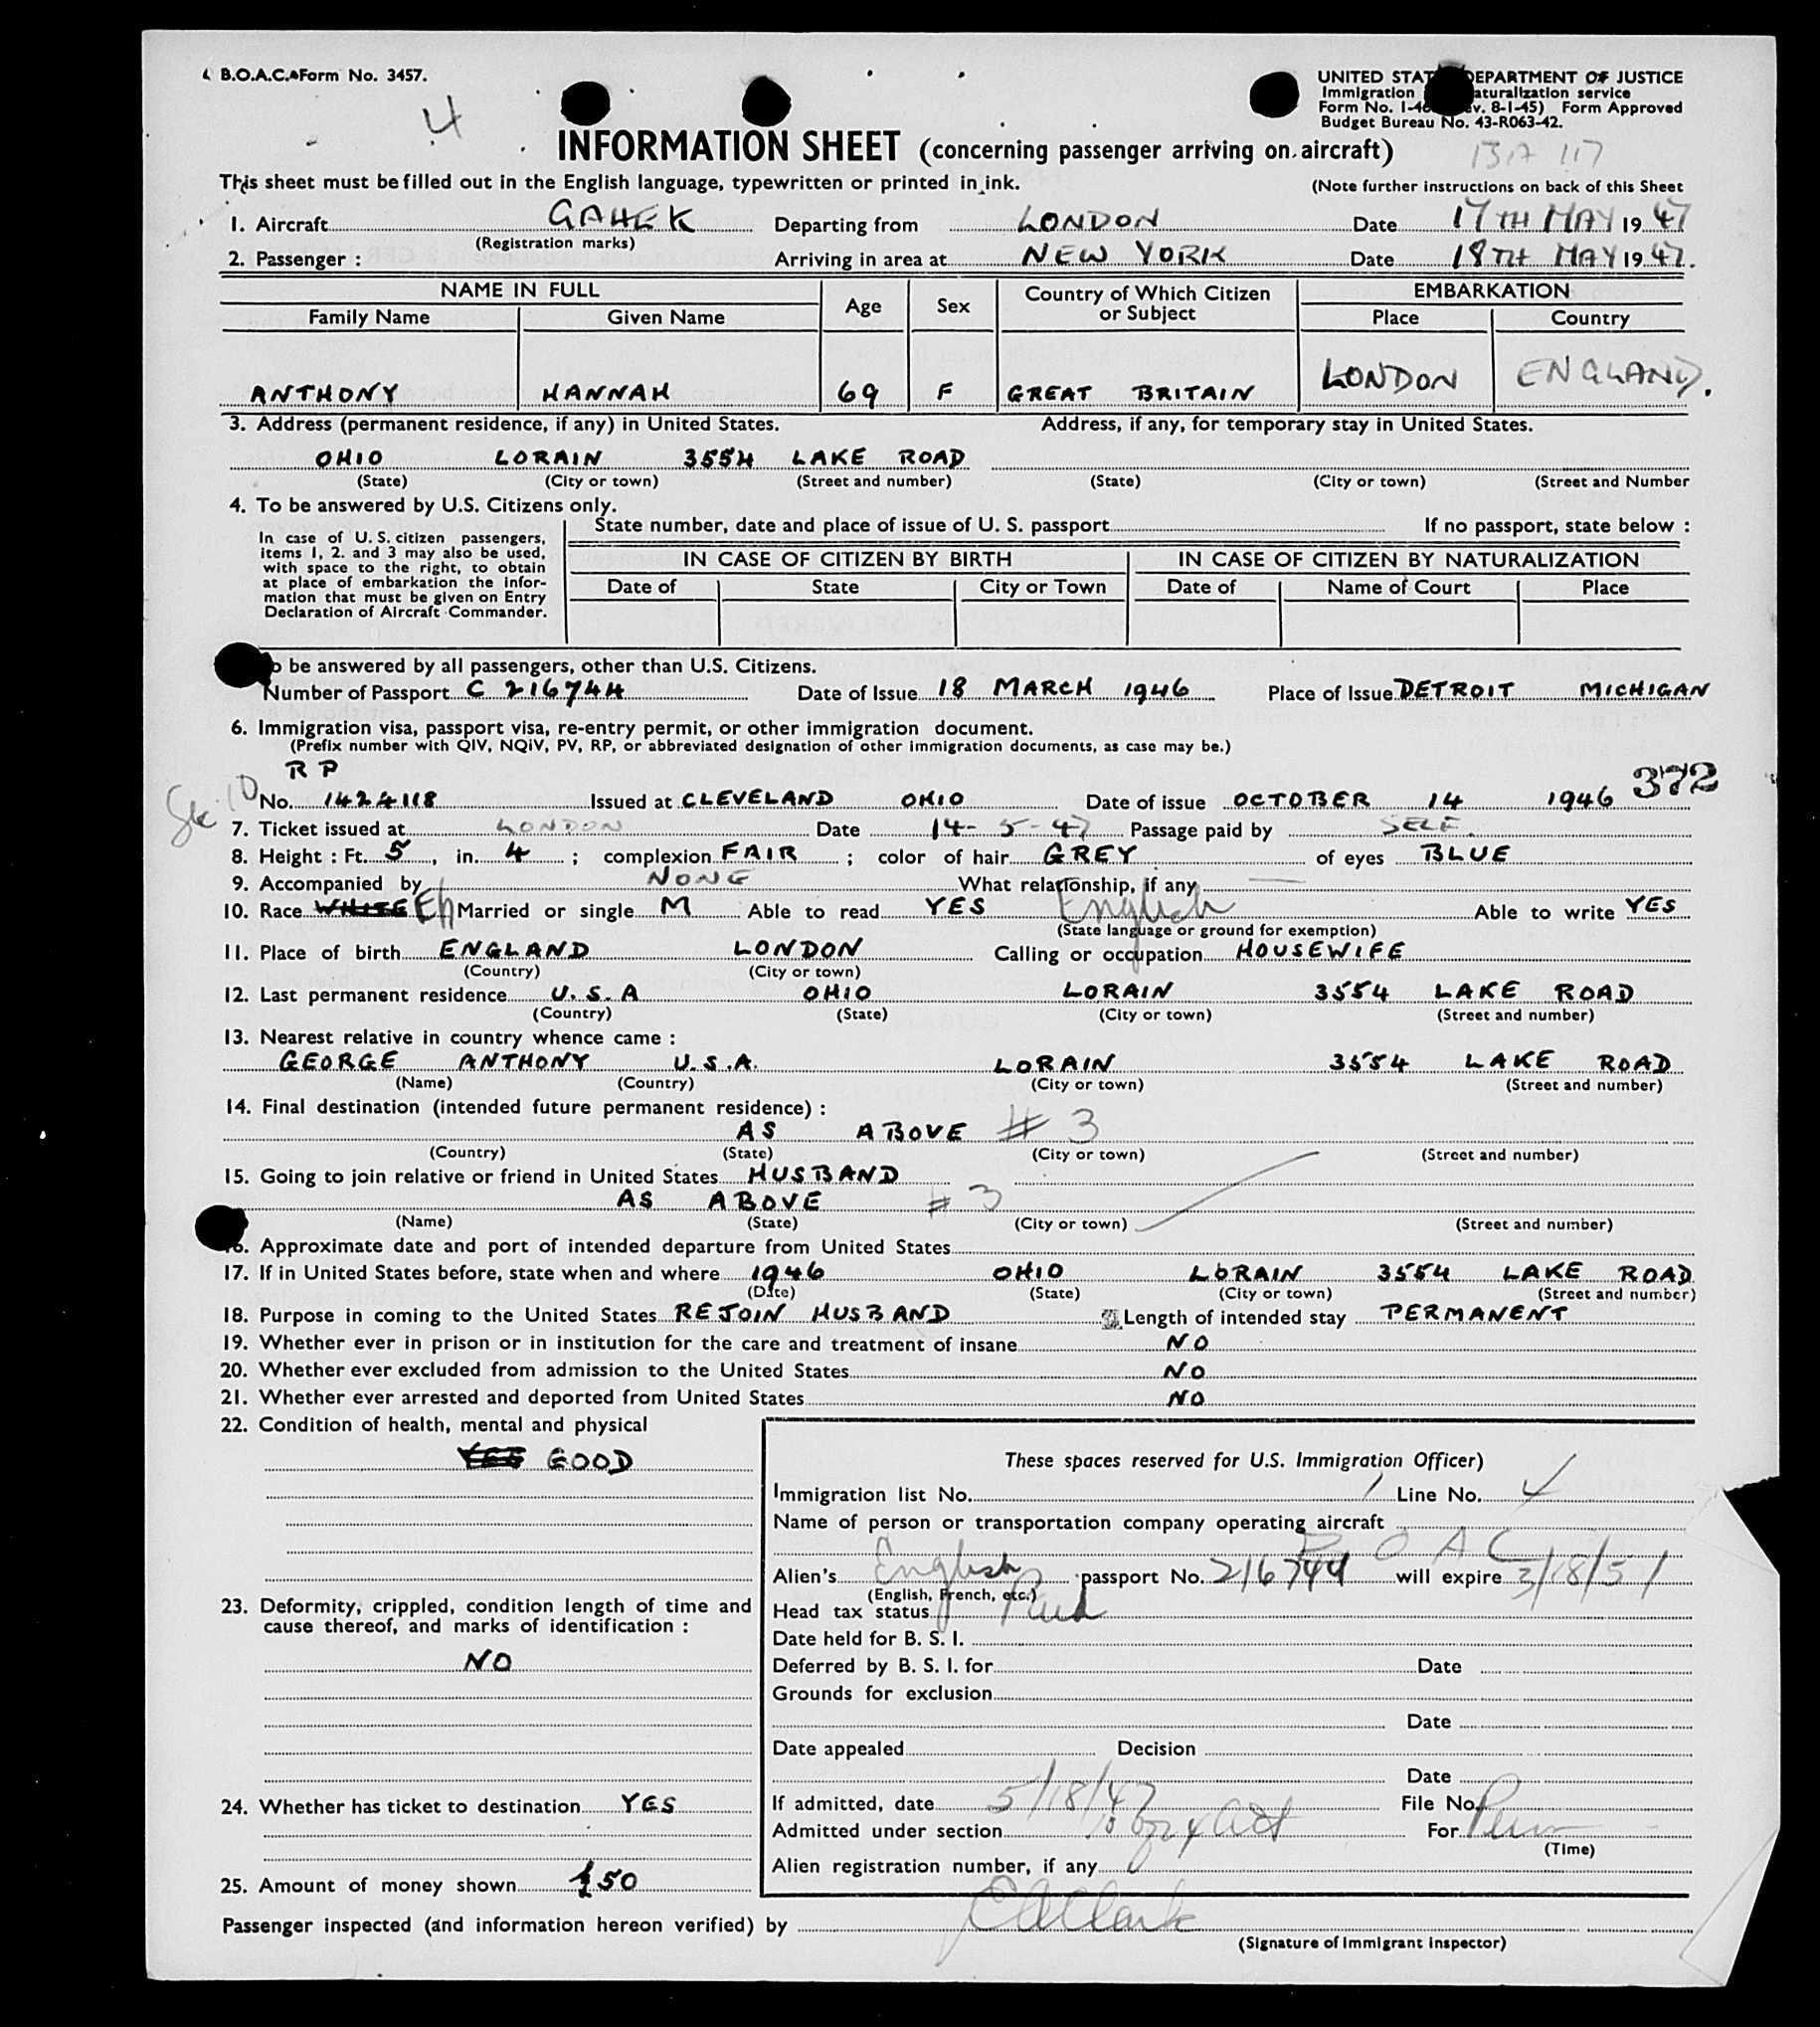 B.O.A.C. Form No. 3457.
UNITED STAT DEPARTMENT OF JUSTICE
Immigration aturalization service
Form No. I-4 v. 8-1-45) Form Approved
Budget Bureau No. 43-R063-42.
4
INFORMATION SHEET (concerning passenger arriving on aircraft)
This sheet must be filled out in the English language, typewritten or printed in ink.
(Note further instructions on back of this Sheet
1. Aircraft GAHEK Departing from LONDON Date 17TH MAY 19 47
(Registration marks)
2. Passenger : Arriving in area at NEW YORK Date 18TH MAY 19 47.
NAME IN FULL Age Sex Country of Which Citizen or Subject EMBARKATION
Family Name Given Name Place Country
ANTHONY HANNAH 69 F GREAT BRITAIN LONDON ENGLAND.
3. Address (permanent residence, if any) in United States. Address, if any, for temporary stay in United States.
OHIO LORAIN 3554 LAKE ROAD
(State) (City or town) (Street and number) (State) (City or town) (Street and Number
4. To be answered by U.S. Citizens only.
State number, date and place of issue of U. S. passport If no passport, state below :
In case of U. S. citizen passengers,
items 1, 2. and 3 may also be used,
with space to the right, to obtain
at place of embarkation the infor-
mation that must be given on Entry
Declaration of Aircraft Commander.
IN CASE OF CITIZEN BY BIRTH IN CASE OF CITIZEN BY NATURALIZATION
Date of State City or Town Date of Name of Court Place
o be answered by all passengers, other than U.S. Citizens.
Number of Passport C 216744 Date of Issue 18 MARCH 1946 Place of Issue DETROIT MICHIGAN
6. Immigration visa, passport visa, re-entry permit, or other immigration document.
(Prefix number with QIV, NQIV, PV, RP, or abbreviated designation of other immigration documents, as case may be.)
R P
372
No. 1424118 Issued at CLEVELAND OHIO Date of issue OCTOBER 14 1946
7. Ticket issued at LONDON Date 14-5-47 Passage paid by SELF.
8. Height : Ft. 5, in. 4 ; complexion FAIR ; color of hair GREY of eyes BLUE
9. Accompanied by NONE What relationship, if any —
10. Race WHITE Eng Married or single M Able to read YES English Able to write YES
(State language or ground for exemption)
11. Place of birth ENGLAND LONDON Calling or occupation HOUSEWIFE
(Country) (City or town)
12. Last permanent residence U.S.A OHIO LORAIN 3554 LAKE ROAD
(Country) (State) (City or town) (Street and number)
13. Nearest relative in country whence came :
GEORGE ANTHONY U.S.A. LORAIN 3554 LAKE ROAD
(Name) (Country) (City or town) (Street and number)
14. Final destination (intended future permanent residence) :
AS ABOVE # 3
(Country) (State) (City or town) (Street and number)
15. Going to join relative or friend in United States HUSBAND
AS ABOVE # 3
(Name) (State) (City or town) (Street and number)
16. Approximate date and port of intended departure from United States
17. If in United States before, state when and where 1946 OHIO LORAIN 3554 LAKE ROAD
(Date) (State) (City or town) (Street and number)
18. Purpose in coming to the United States REJOIN HUSBAND Length of intended stay PERMANENT
19. Whether ever in prison or in institution for the care and treatment of insane NO
20. Whether ever excluded from admission to the United States NO
21. Whether ever arrested and deported from United States NO
22. Condition of health, mental and physical
YES GOOD
These spaces reserved for U.S. Immigration Officer)
Immigration list No. 1 Line No. 4
Name of person or transportation company operating aircraft
B O A C
Alien's English passport No. 216744 will expire 3/18/51
(English, French, etc.)
23. Deformity, crippled, condition length of time and
cause thereof, and marks of identification :
NO
Head tax status Paid
Date held for B. S. I.
Deferred by B. S. I. for Date
Grounds for exclusion
Date
Date appealed Decision
Date
24. Whether has ticket to destination YES
If admitted, date 5/18/47 File No.
Admitted under section For Perm
(Time)
Alien registration number, if any
25. Amount of money shown £50
Passenger inspected (and information hereon verified) by E A Clark
(Signature of Immigrant Inspector)